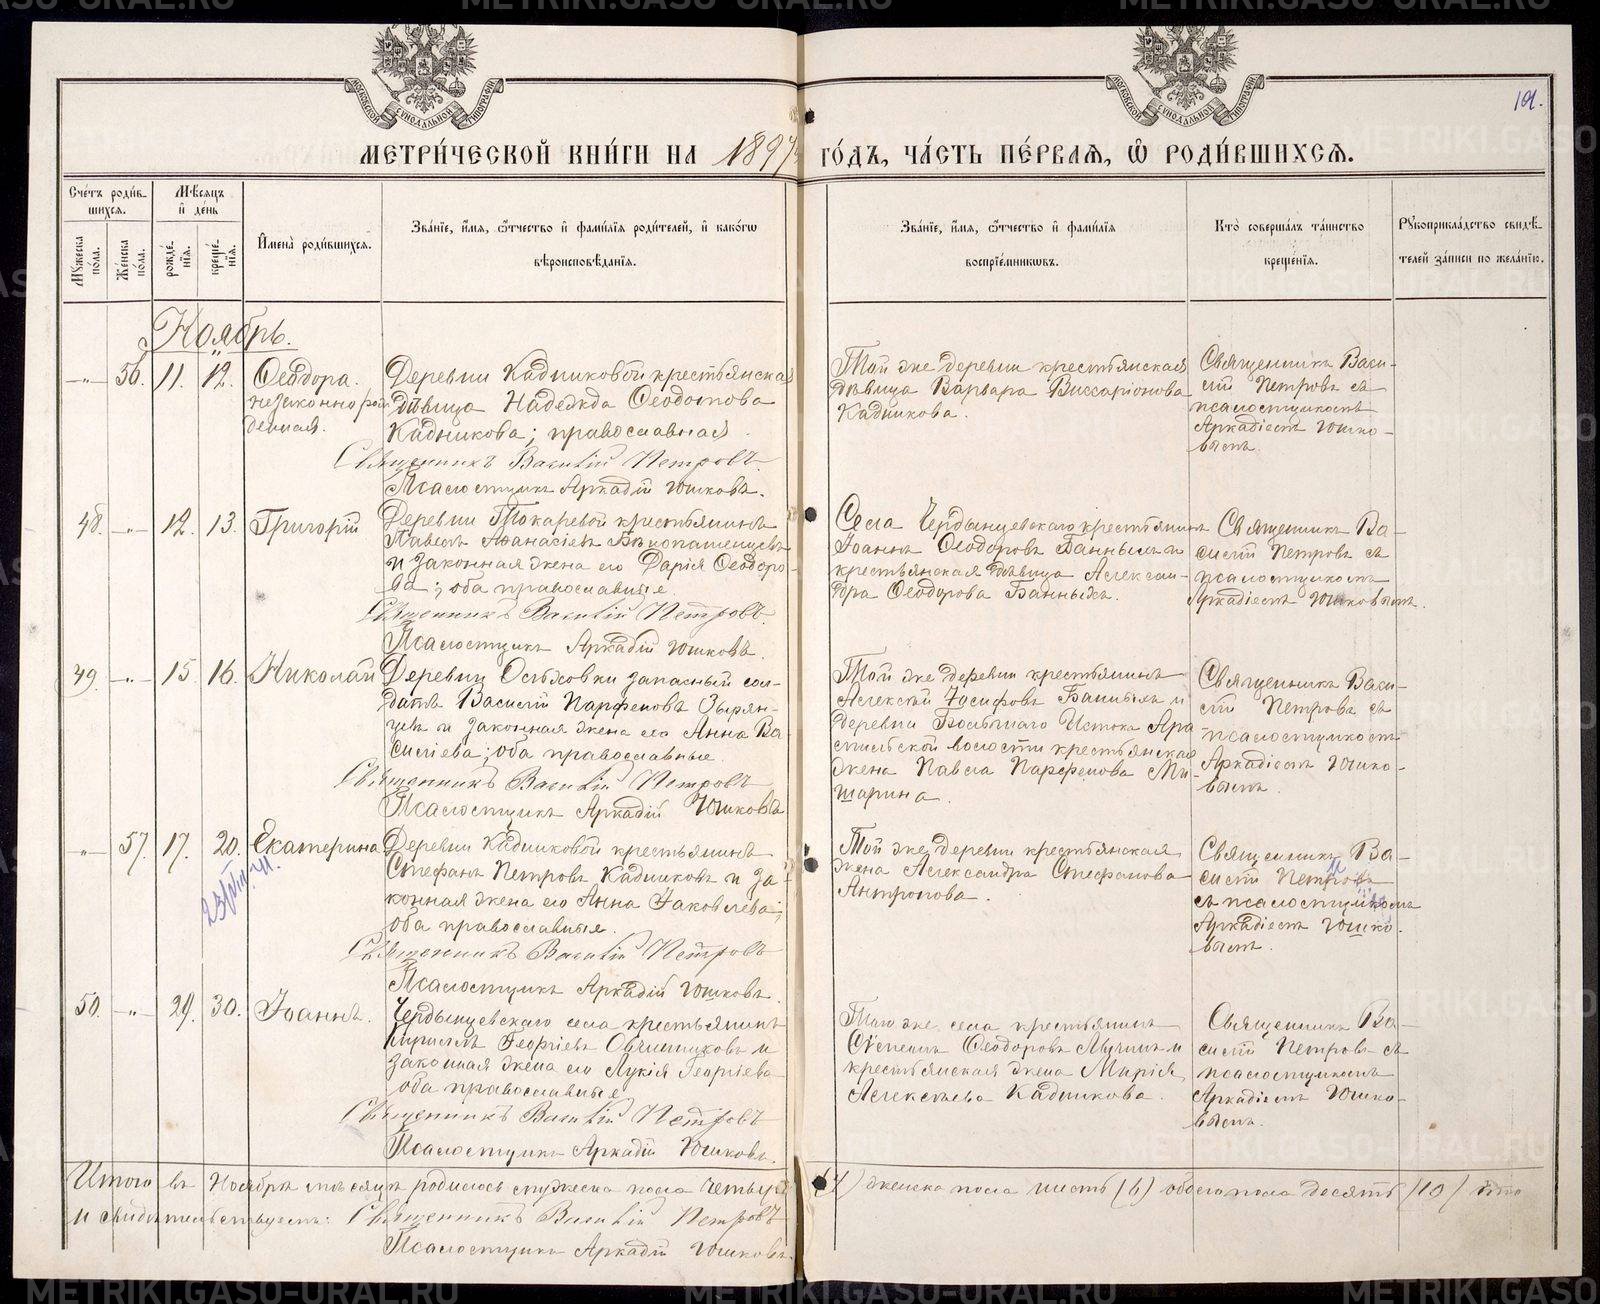 101.
МЕТРИ́ЧЕСКОЙ КНИ́ГИ НА 1897 ГО́ДЪ, ЧА́СТЬ ПЕ́РВАЯ, Ѡ РОДИ́ВШИХСЯ.
Сче́тъ роди́в-
шихся.
Му́жеска по́ла.
Же́нска по́ла.
Мѣ́сяцъ
и де́нь
рожде́нїя.
креще́нїя.
И҆мена̀ роди́вшихся.
Зва́нїе, и҆́мя, ѻ҆́тчество и҆ фами́лїя роди́телей, и҆ како́гѡ
вѣроисповѣ́данїя.
Зва́нїе, и҆́мя, ѻ҆́тчество и҆ фами́лїя
воспрїе́мникѡвъ.
Кто̀ соверша́лъ та́инство
креще́нїя.
Рукоприкла́дство свидѣ́-
телей за́писи по жела́нїю.
Ноябрь.
-"- 56. 11. 12. Ѳеодора.
незаконнорож
денная.
Деревни Кадниковой крестьянская
дѣвица Надежда Ѳеодотова
Кадникова; православная.
Священникъ Василій Петровъ.
Псаломщикъ Аркадій Юшковъ.
Той же деревни крестьянская
дѣвица Варвара Виссаріонова
Кадникова.
Священникъ Васи-
лій Петровъ съ
псаломщикомъ
Аркадіемъ Юшко-
вымъ.
48. -"- 12. 13. Григорій
Деревни Токаревой крестьянинъ
Павелъ Аѳанасіевъ Бѣлопашенцевъ
и законная жена его Дарія Ѳеодоро-
ва; оба православные.
Священникъ Василій Петровъ.
Псаломщикъ Аркадій Юшковъ.
Села Чердынцевскаго крестьянинъ
Іоаннъ Ѳеодоровъ Банныхъ и
крестьянская дѣвица Алексан-
дра Ѳеодорова Банныхъ.
Священникъ Ва-
силій Петровъ съ
псаломщикомъ
Аркадіемъ Юшковымъ.
49. -"- 15. 16. Николай
Деревни Ольховки запасный сол-
датъ Василій Парфеновъ Зырян-
цевъ и законная жена его Анна Ва-
силіева; оба православные.
Священникъ Василій Петровъ
Псаломщикъ Аркадій Юшковъ
Той же деревни крестьянинъ
Алексѣй Іосифовъ Банныхъ и
деревни Большаго Истока Ара
мильской волости крестьянская
жена Павла Парфенова Ми-
шарина.
Священникъ Васи-
лій Петровъ съ
псаломщикомъ
Аркадіемъ Юшко-
вымъ.
-"- 57. 17. 20. Екатерина
Деревни Кадниковой крестьянинъ
Стефанъ Петровъ Кадниковъ и за-
конная жена его Анна Іаковлева;
оба православные.
Священникъ Василій Петровъ
Псаломщикъ Аркадій Юшковъ.
Той же деревни крестьянская
жена Александра Стефанова
Антропова.
Священникъ Ва-
силій Петровъ
съ псаломщикомъ
Аркадіемъ Юшко-
вымъ.
50. -"- 29. 30. Іоаннъ.
Чердынцевскаго села крестьянинъ
Кириллъ Георгіевъ Овчинниковъ и
законная жена его Лукія Георгіева
оба православные
Священникъ Василій Петровъ
Псаломщикъ Аркадій Юшковъ.
Того же села крестьянинъ
Стефанъ Ѳеодоровъ Лучинъ и
крестьянская жена Марія
Алексѣева Кадникова.
Священникъ Ва-
силій Петровъ съ
псаломщикомъ
Аркадіемъ Юшко-
вымъ.
Итого въ Ноябрѣ мѣсяцѣ родилось мужеска пола четыре (4) женска пола шесть (6) обоего пола десять (10) что
и свидѣтельствуемъ: Священникъ Василій Петровъ
Псаломщикъ Аркадій Юшковъ.
METRIKI.GASO-URAL.RU